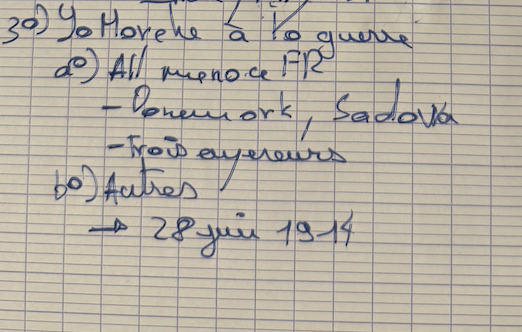 3°) La Marche à la guerre
a°) All menace FR
- Danemark, Sadova
- Trois empereurs
b°) Autres
→ 28 juin 1914